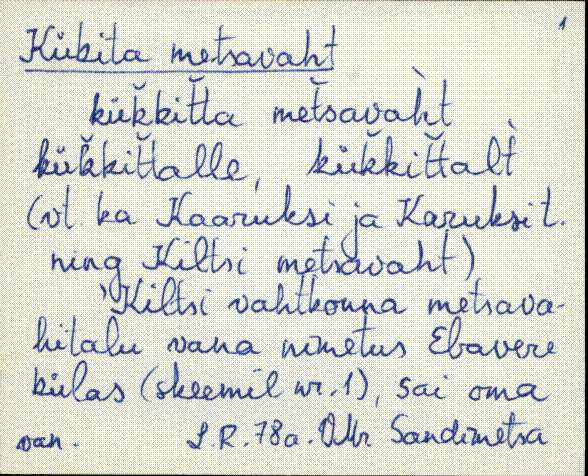 1
Kübita metsavaht
kük̆kit̆ta met̆savah̀t
kük̆kit̆talle, kük̆kit̆talt̀
(vt. ka Kaaruksi ja Karuksi t.
ning Kiltsi metsavaht)
Kiltsi vahtkonna metsava-
hitalu vana nimetus Ebavere
külas (skeemil nr. 1), sai oma
van. L.R. 78a. VMr Sandimetsa